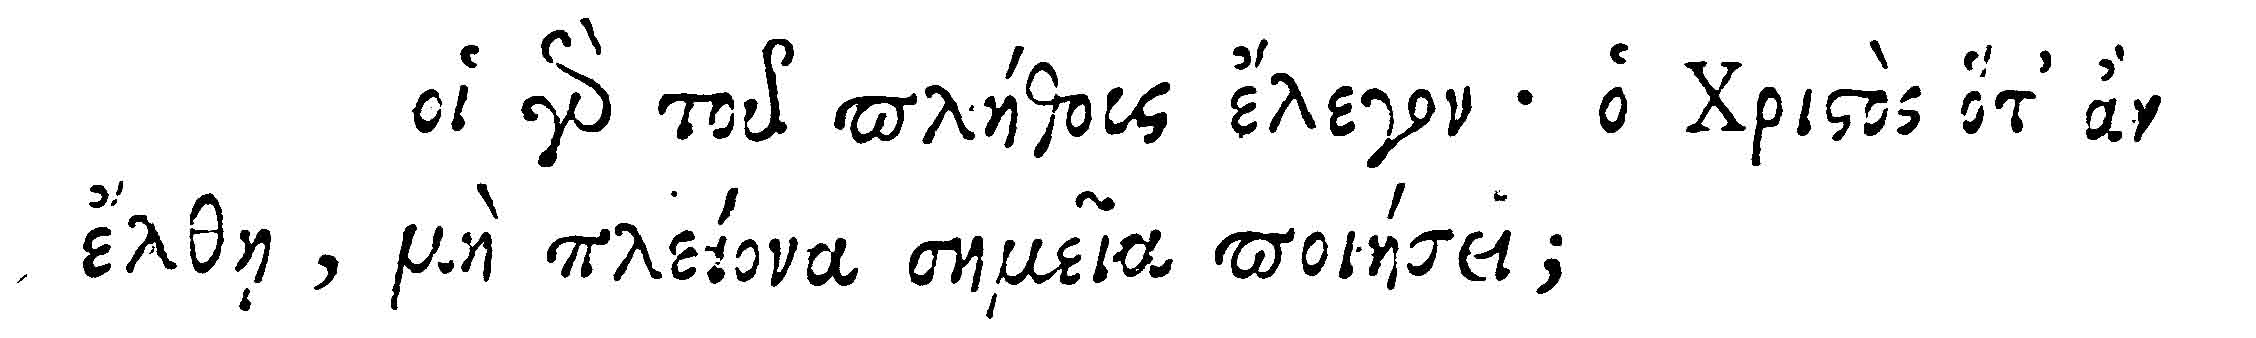 οἱ γὰρ τοῦ πλήθους ἔλεγον · ὁ Χριστὸς ὅτ' ἀν
ἔλθῃ, μὴ πλείονα σημεῖα ποιήσει;